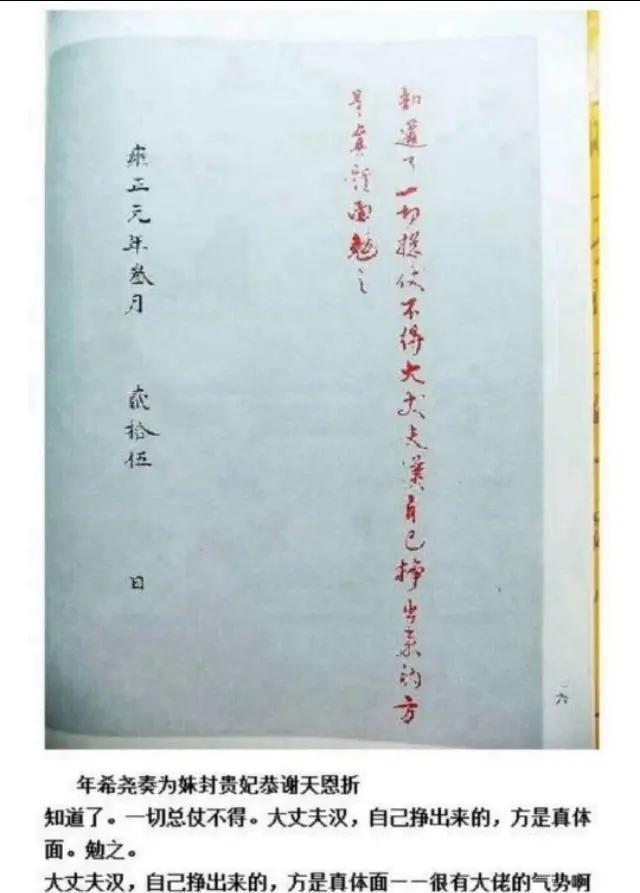 知道了一切捴仗不得大丈夫漢自己挣出来的方
是真體面勉之
雍正元年叁月 貳拾伍 日
六
年希尧奏为妹封贵妃恭谢天恩折
知道了。一切总仗不得。大丈夫汉，自己挣出来的，方是真体
面。勉之。
大丈夫汉，自己挣出来的，方是真体面——很有大佬的气势啊